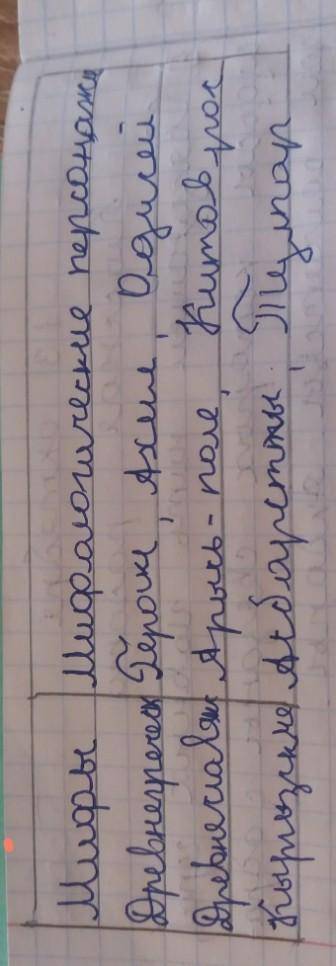 Мифы Мифологические персонажи
Древнегреческ Геракл, Ахилл, Одиссей
Древнеславян Арысь-поле, Китоврас
Кыргызские Акбарстжы, Тулпар